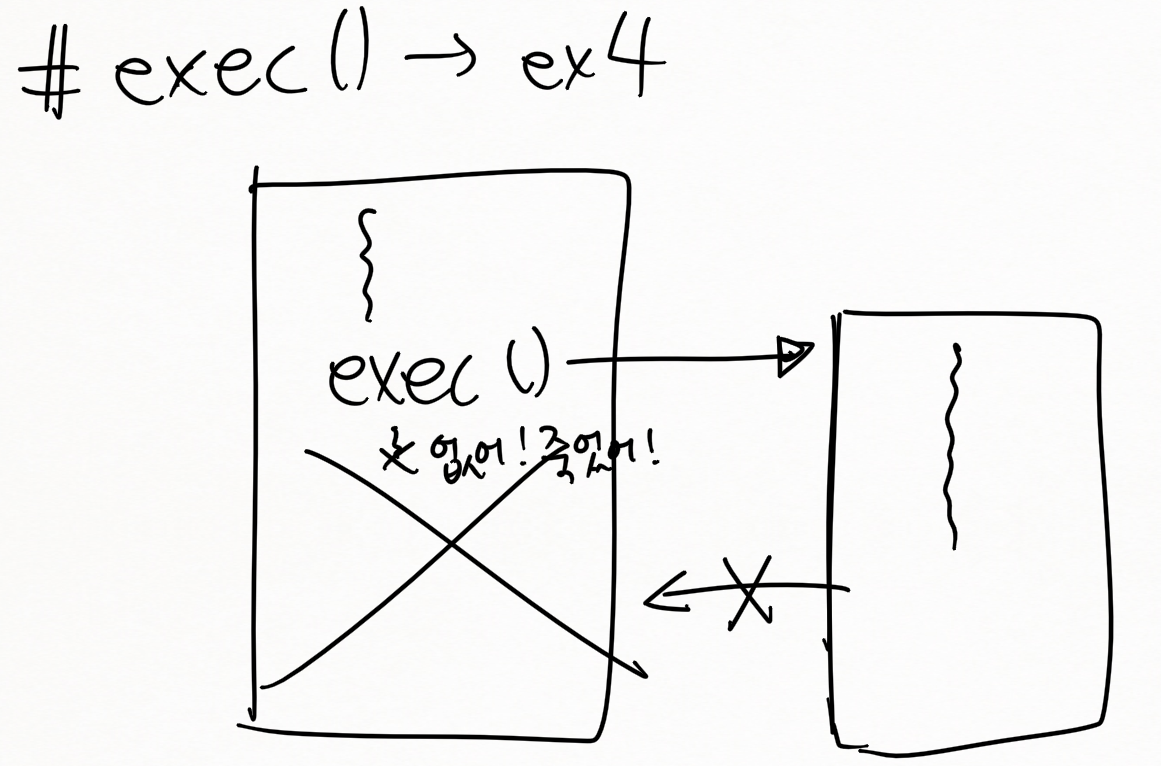 # exec() → ex4
exec()
훗 없어! 죽었어!